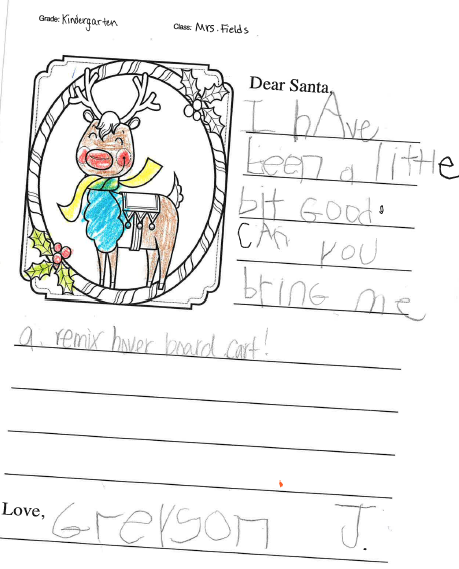 Grade: Kindergarten
Class: Mrs. Fields
Dear Santa,
I hAve
been a little
bit GOOD.
CAn you
bring me
a remix hover board cart!
Love, Greyson J.